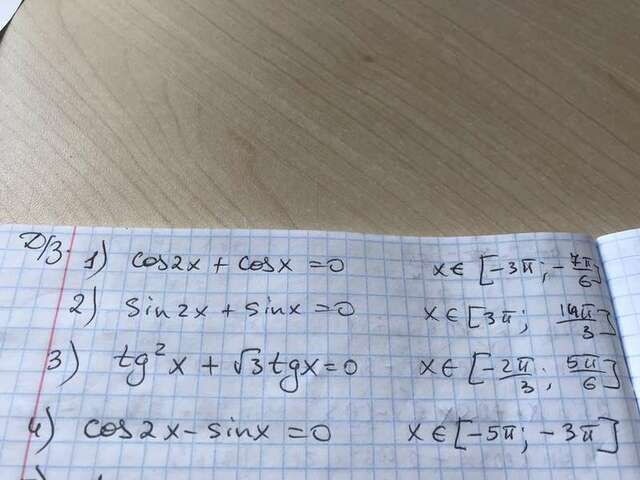 Д/З. 1) cos2x + cosx = 0 x ∈ [-3π; -7π/6]
2) sin2x + sinx = 0 x ∈ [3π; 14π/3]
3) tg²x + √3 tgx = 0 x ∈ [-2π/3; 5π/6]
4) cos2x - sinx = 0 x ∈ [-5π; -3π]